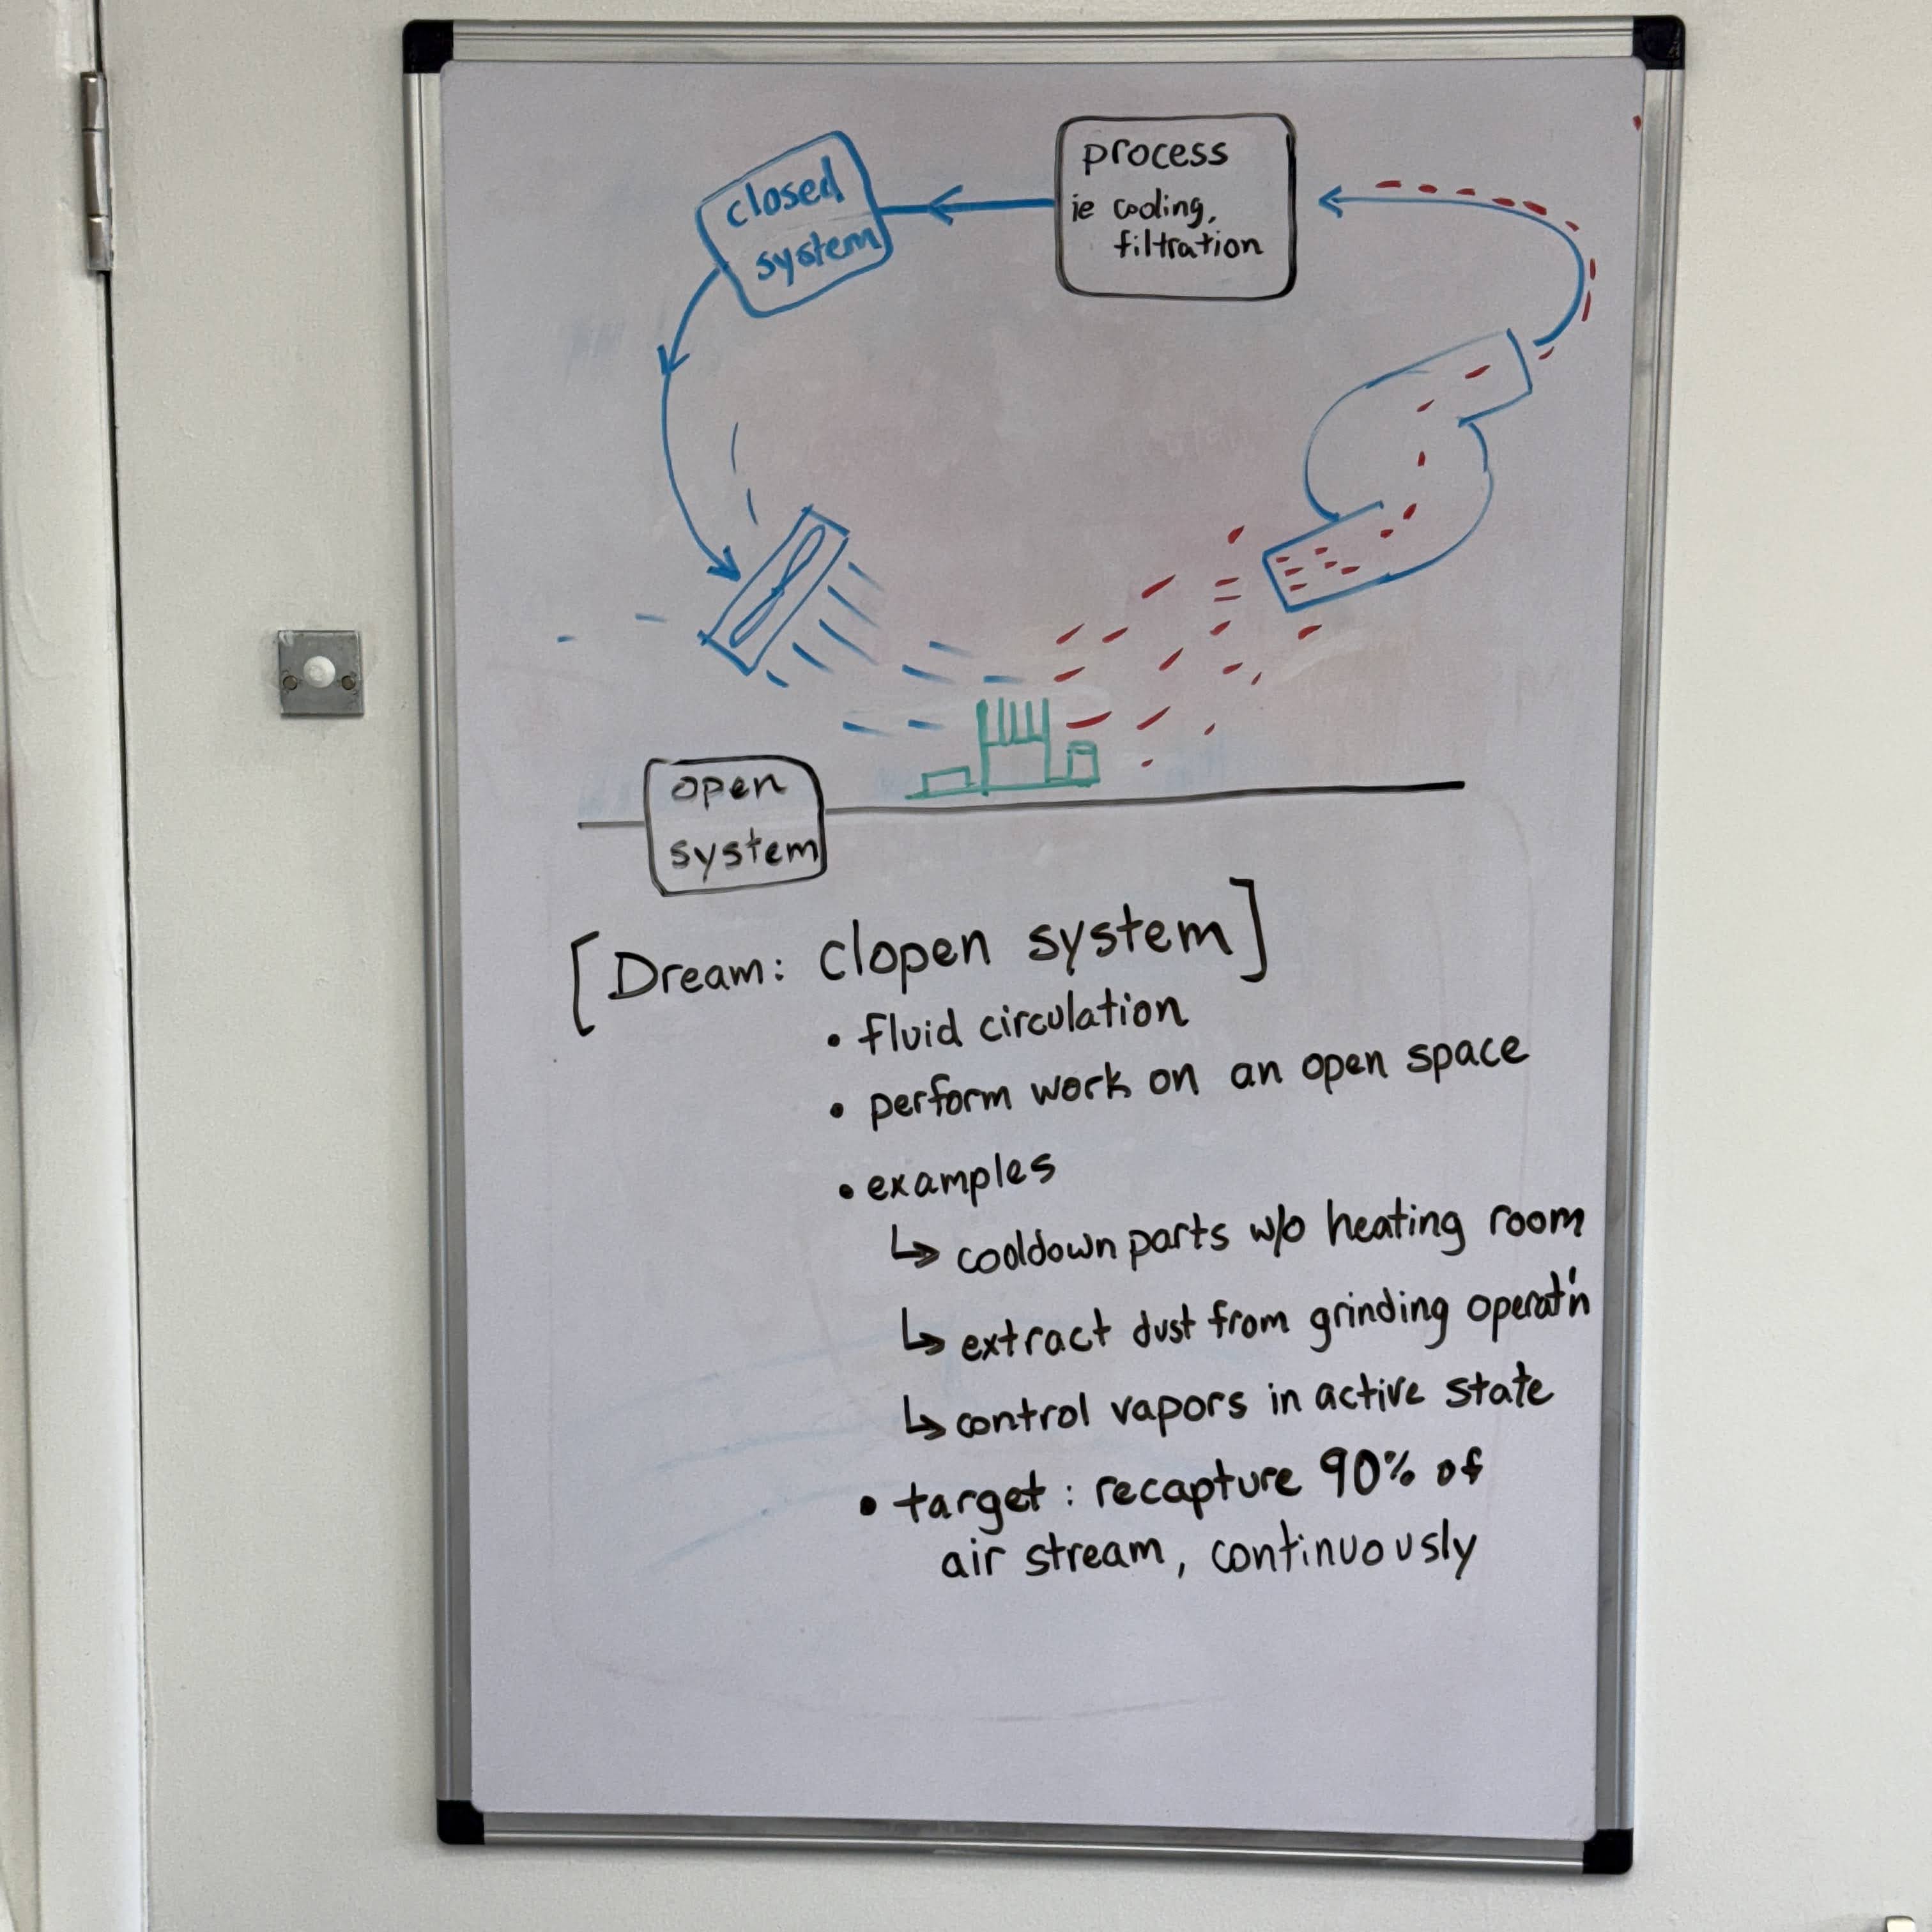 closed
system
process
ie cooling,
filtration
open
system
[Dream: clopen system]
• fluid circulation
• perform work on an open space
• examples
↳ cooldown parts w/o heating room
↳ extract dust from grinding operat'n
↳ control vapors in active state
• target: recapture 90% of
air stream, continuously